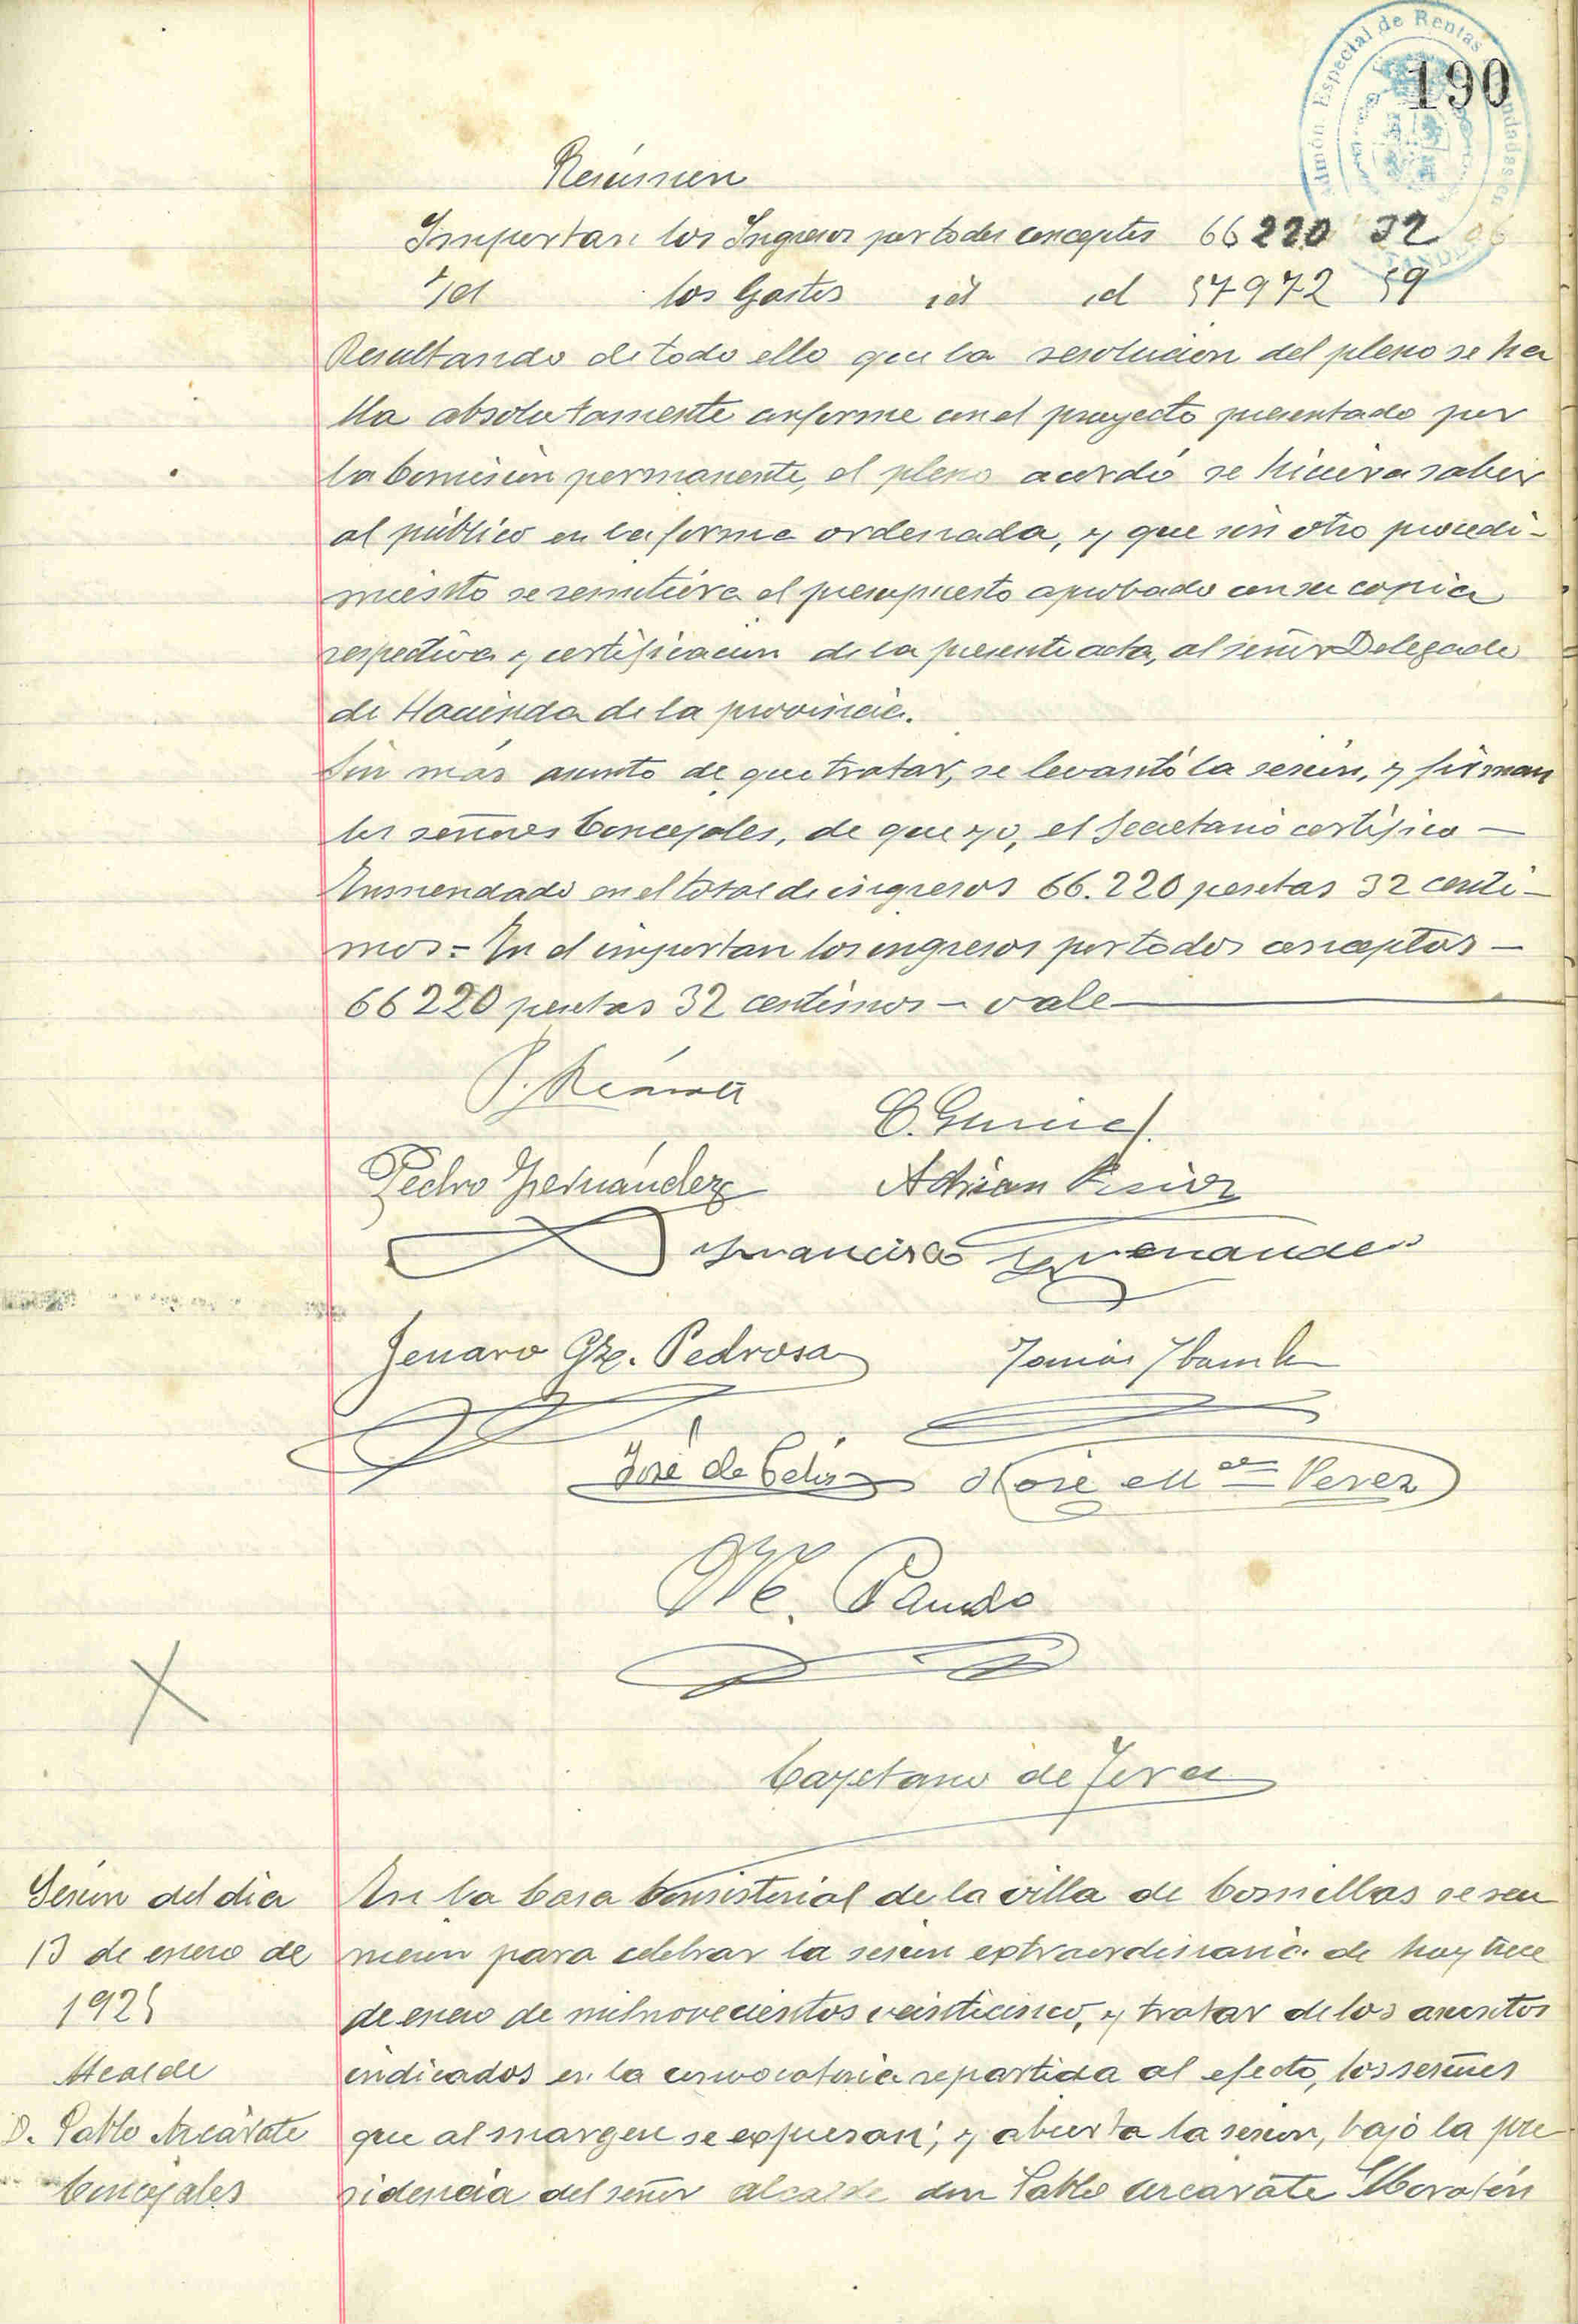 190
Resúmen
Importan los Ingresos por todos conceptos 66220 32
Id los Gastos id id 57972 59
Resultando de todo ello que la resolucion del pleno se ha
lla absolutamente conforme con el proyecto presentado por
la Comision permanente, el pleno acordó se hiciera saber
al público en la forma ordenada, y que sin otro procedi-
miento se remitiera el presupuesto aprobado con su copia
respectiva y certificacion de la presente acta, al señor Delegado
de Hacienda de la provincia.
Sin más asunto de que tratar, se levantó la sesion, y firman
los señores Concejales, de que yo, el Secretario certifico —
Enmendado en el total de ingresos 66.220 pesetas 32 centi-
mos = En el importan los ingresos por todos conceptos —
66220 pesetas 32 centimos — vale
Pedro Fernández Adrian
Francisco Fernandez
Jenaro Gze. Pedrosa
José de Celis José Mª Perez
M. Pando
Cayetano de
Sesion del dia
13 de enero de
1925
Alcalde
D. Pablo Arcarate
Concejales
En la Casa Consistorial de la villa de Comillas se reu
nieron para celebrar la sesion extraordinaria de hoy trece
de enero de mil novecientos veinticinco, y tratar de los asuntos
indicados en la convocatoria repartida al efecto, los señores
que al margen se expresan; y abierta la sesion, bajo la pre
sidencia del señor alcalde don Pablo Arcarate